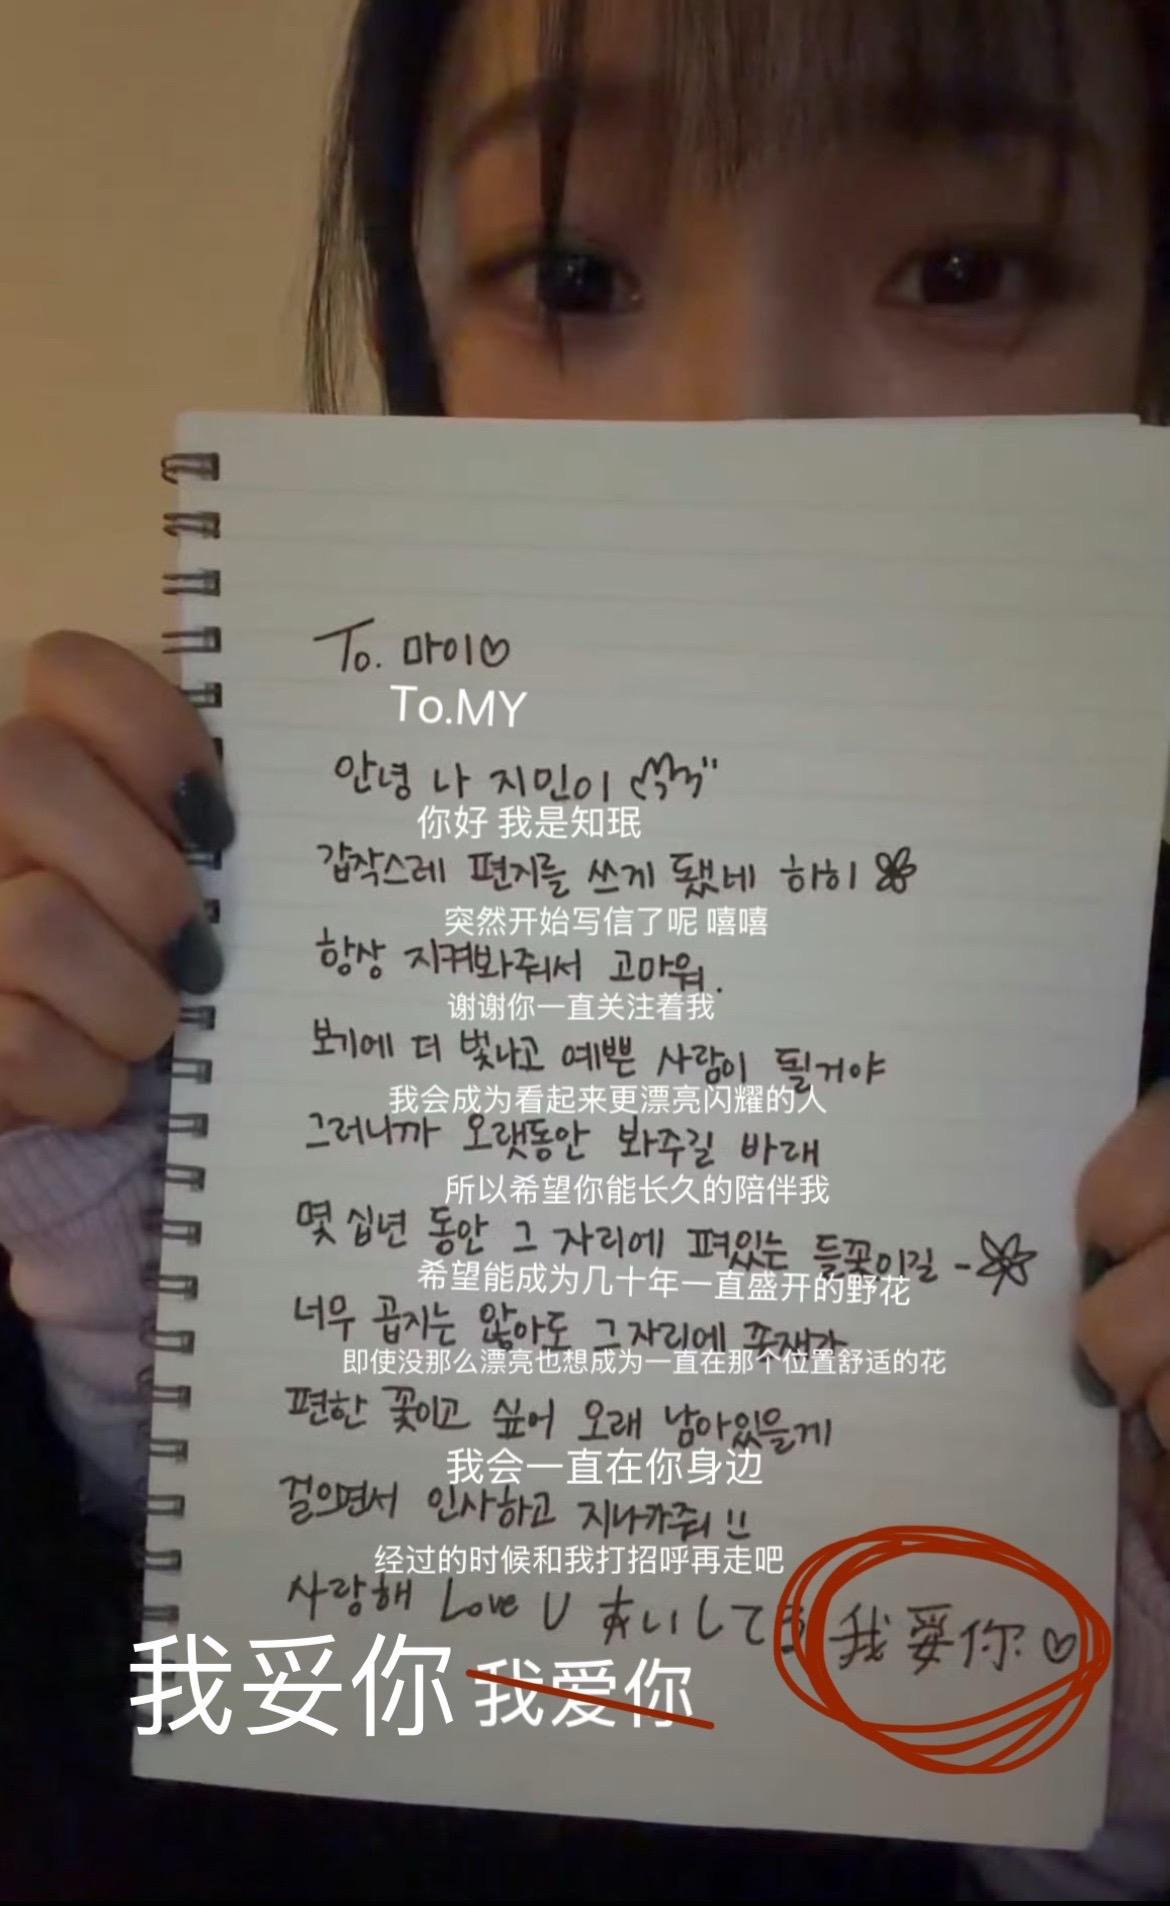 To. 마이♡
To.MY
안녕 나 지민이
你好 我是知珉
갑작스레 편지를 쓰게 됐네 하히
突然开始写信了呢 嘻嘻
항상 지켜봐줘서 고마워.
谢谢你一直关注着我
보기에 더 빛나고 예쁜 사람이 될거야
我会成为看起来更漂亮闪耀的人
그러니까 오랫동안 봐주길 바래
所以希望你能长久的陪伴我
몇 십년 동안 그 자리에 펴있는 들꽃이길 -
希望能成为几十年一直盛开的野花
너무 곱지는 않아도 그 자리에 존재가
即使没那么漂亮也想成为一直在那个位置舒适的花
편한 꽃이고 싶어 오래 남아있을게
我会一直在你身边
걸으면서 인사하고 지나가줘!!
经过的时候和我打招呼再走吧
사랑해 Love U あいしてる 我妥你♡
我妥你 我爱你